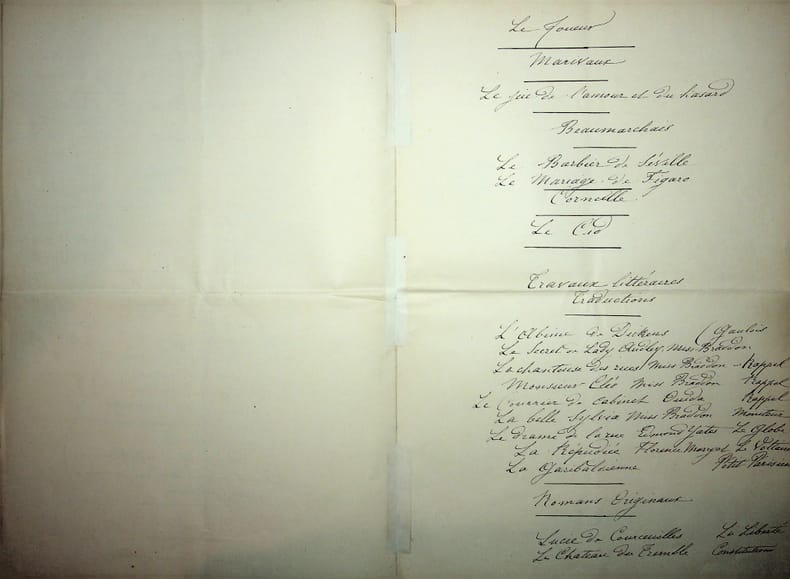 Le Joueur
Marivaux
Le jeu de l'amour et du hasard
Beaumarchais
Le Barbier de Séville
Le Mariage de Figaro
Corneille
Le Cid
Travaux littéraires
Traductions
L'Abîme de Dickens (Gaulois
Le Secret de Lady Audley, Miss Braddon
La chanteuse des rues Miss Braddon - Rappel
Monsieur Cléo Miss Braddon Rappel
Le Courrier de cabinet Ouida Rappel
La belle Sylvia Miss Braddon Moniteur
Le drame de la rue Edmond Yates Le Globe
La Répudiée Florence Marryat Le Voltaire
La Garibaldienne Petit Parisien
Romans Originaux
Lucie de Courceulles La Liberté
Le Chateau du Tremble Constitution